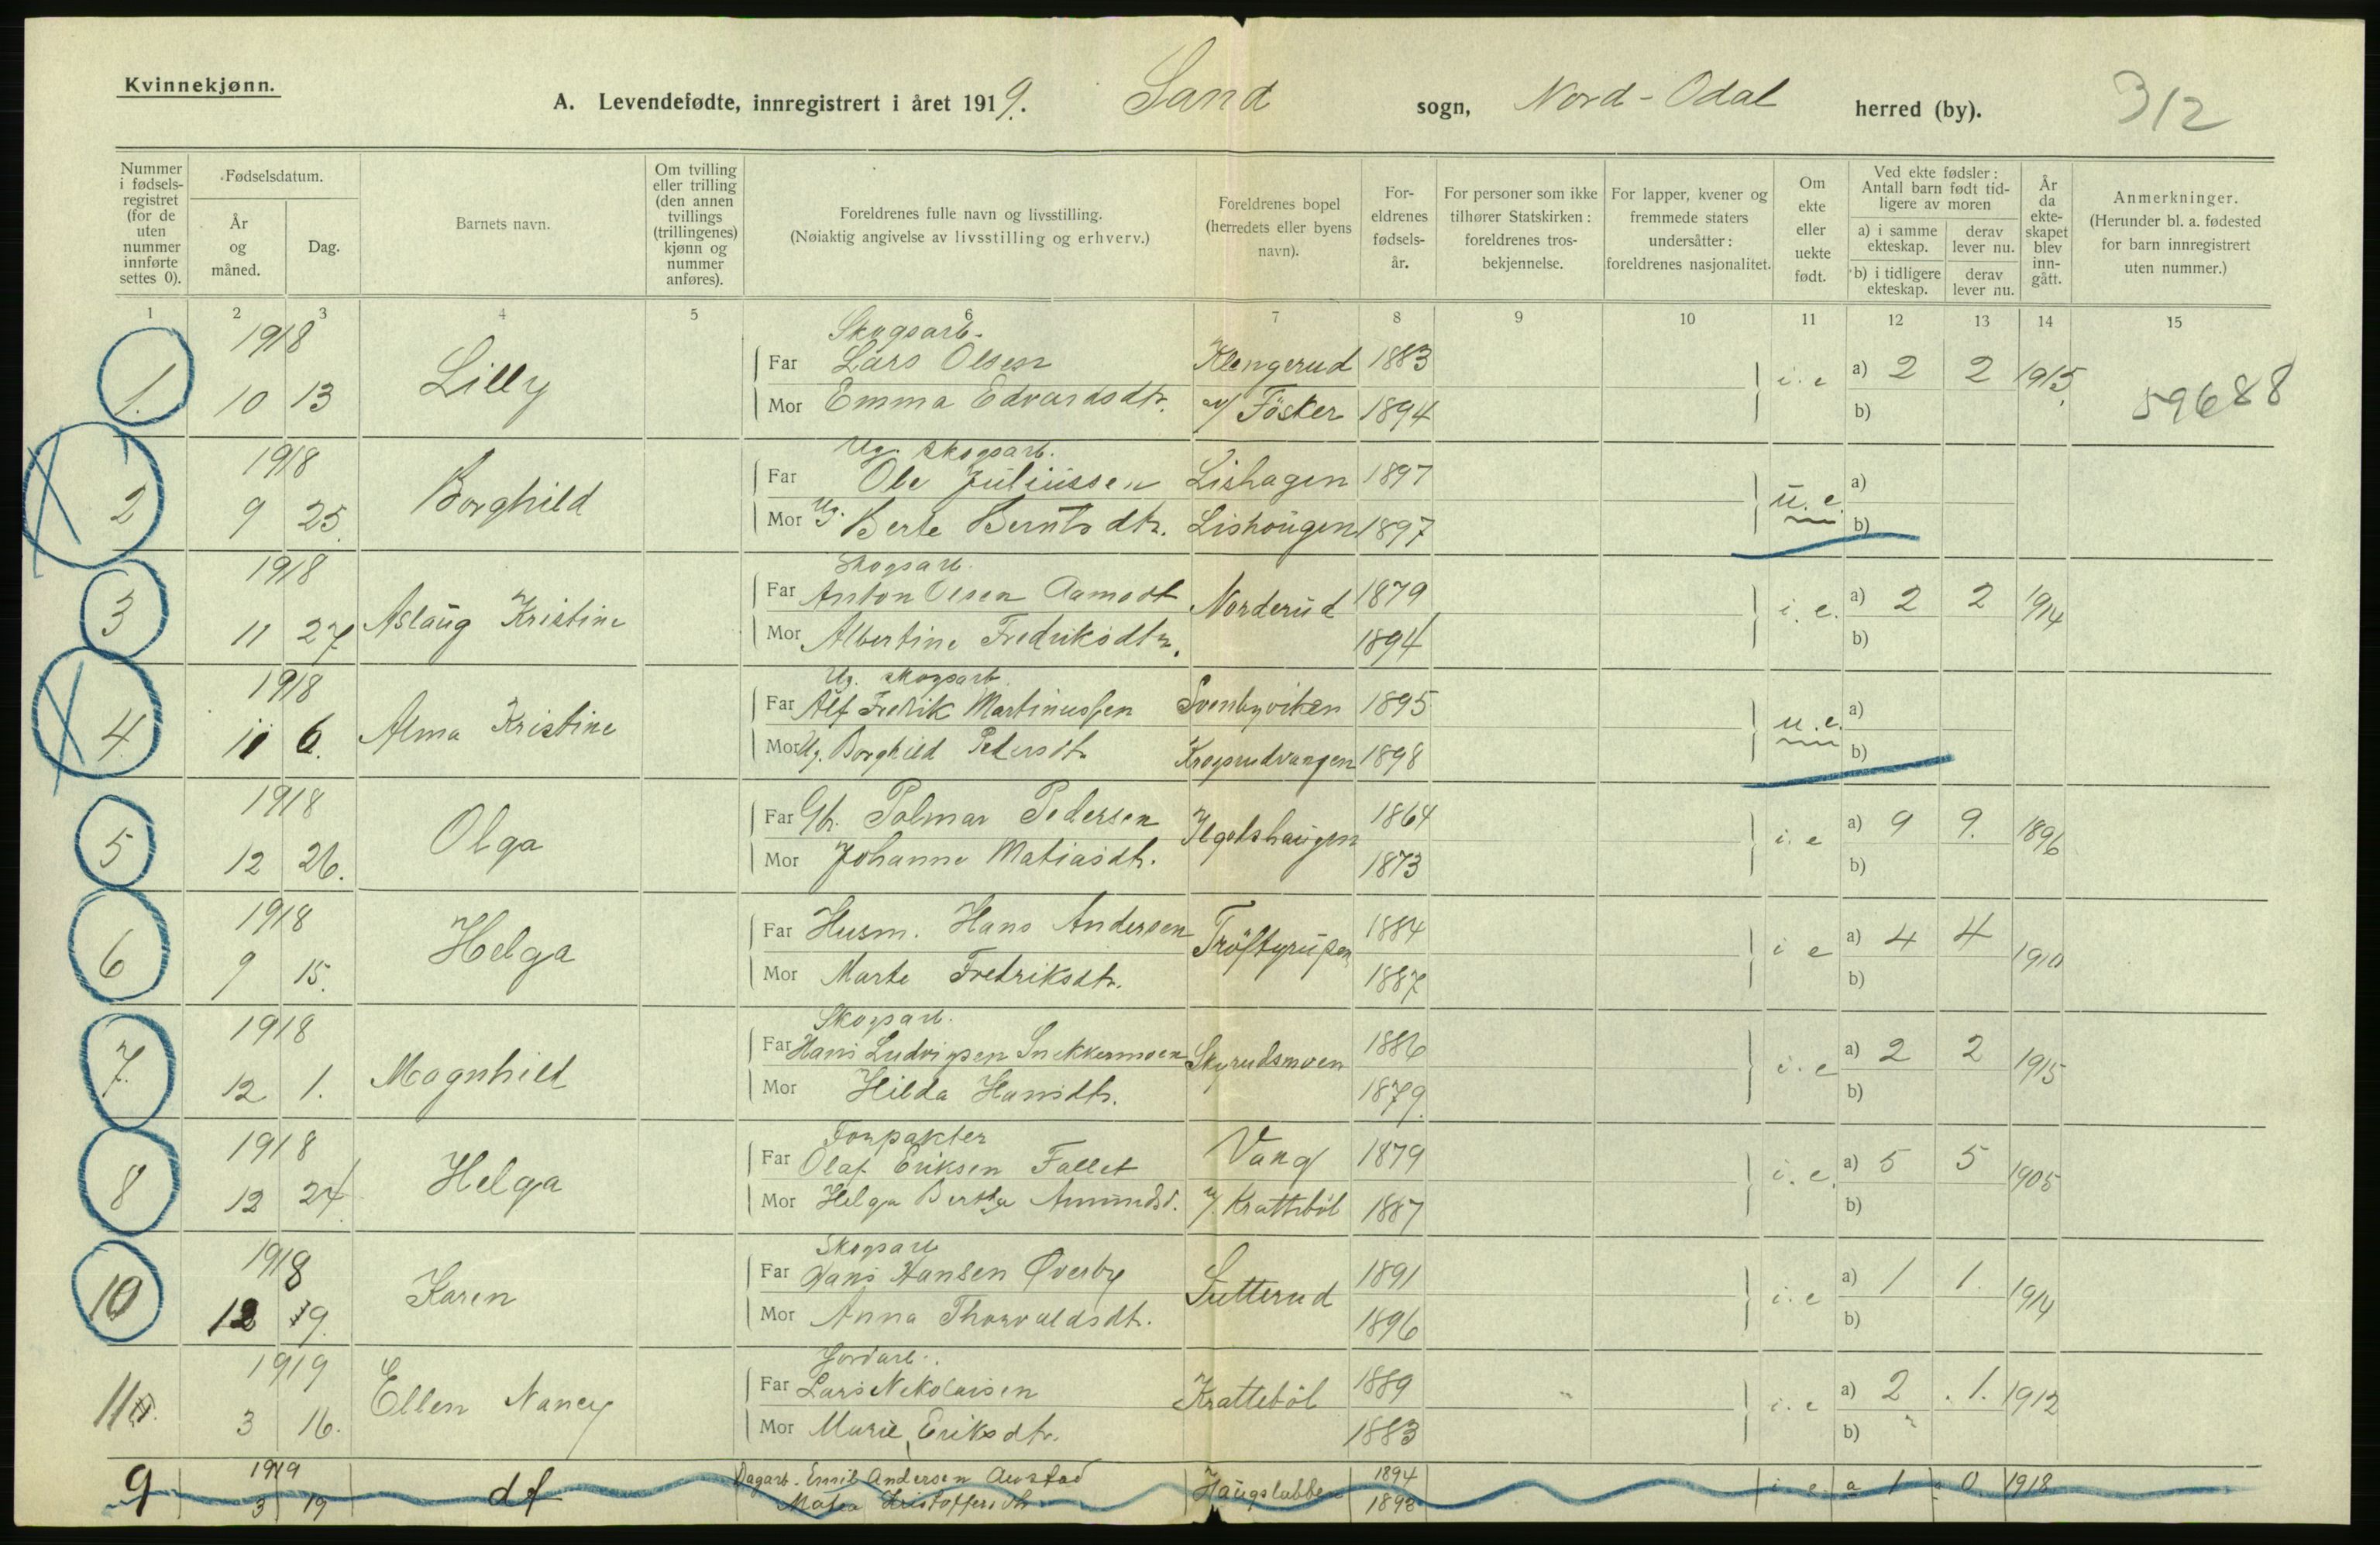 Kvinnekjønn.
A. Levendefødte, innregistrert i året 1919. Sand sogn, Nord-Odal herred (by).
312
Nummer i fødselsregistret (for de uten nummer innførte settes 0).
Fødselsdatum.
År og måned.
Dag.
Barnets navn.
Om tvilling eller trilling (den annen tvillings (trillingenes) kjønn og nummer anføres).
Foreldrenes fulle navn og livsstilling.
(Nøiaktig angivelse av livsstilling og erhverv.)
Foreldrenes bopel (herredets eller byens navn).
Foreldrenes fødselsår.
For personer som ikke tilhører Statskirken: foreldrenes trosbekjennelse.
For lapper, kvener og fremmede staters undersåtter: foreldrenes nasjonalitet.
Om ekte eller uekte født.
Ved ekte fødsler: Antall barn født tidligere av moren
a) i samme ekteskap.
derav lever nu.
b) i tidligere ekteskap.
derav lever nu.
År da ekteskapet blev inngått.
Anmerkninger.
(Herunder bl. a. fødested for barn innregistrert uten nummer.)
1 2 3 4 5 6 7 8 9 10 11 12 13 14 15
1918 Skogsarb.
1. 10 13 Lilly Far Lars Olsen Klengerud 1883 i. e a) 2 2 1915 59688
Mor Emma Edvardsdtr. v/ Fösker 1894 b)
1918 Ug. skogsarb.
2 9 25. Borghild Far Ole Juliussen Lishagen 1897 u. e. a)
Mor Ug. Berte Berntsdtr. Lishougen 1897 b)
1918 Skogsarb.
3 11 27 Aslaug Kristine Far Anton Olsen Aamodt Norderud 1879 i. e. a) 2 2 1914
Mor Albertine Fredriksdtr. 1894 b)
1918 Ug. skogsarb.
4. 11 6. Alma Kristine Far Alf Fredrik Martinussen Svenbyviken 1895 u. e. a)
Mor Ug. Borghild Pedersdt. Krogsrudvangen 1898 b)
1918
5 12 26. Olga Far Gbr. Palmar Pedersen 1864 i. e a) 9 9. 1896
Mor Johanne Matiasdt. 1873 b)
1918
6 9 15. Helga Far Husm. Hans Andersen 1884 i e a) 4 4 1910
Mor Marte Fredriksdtr. 1887 b)
1918 Skogsarb.
7. 12 1. Magnhild Far Hans Ludvigsen Snekkermoen Skyrudsmoen 1886 i. e a) 2 2 1915
Mor Hilda Hansdtr. 1879. b)
1918 Forpakter
8 12 24. Helga Far Olaf Eriksen Fallet Vang 1879 i. e. a) 5 5 1905
Mor Helga Bertha Amundsd. v/. Krattebøl 1887 b)
1918 Skogsarb
10 12 19. Karen Far Hans Hansen Øverby Sutterud 1891 i. e a) 1 1. 1914
Mor Anna Thorvaldsdt. 1896 b)
1919 Jordarb.
11 3 16. Ellen Nancy Far Lars Nikolaisen Kratteböl 1889 i. e a) 2 1. 1912
Mor Marie Eriksdtr. 1883 b)
9 1919 3 19 df Dagarb. Emil Andersen Austad Haugslabben 1894 i e a 1 0 1918
Matea Kristoffersdtr 1892